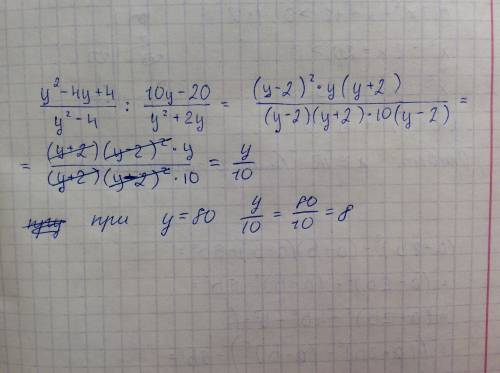 y²-4y+4/y²-4 : 10y-20/y²+2y = (y-2)²·y(y+2)/(y-2)(y+2)·10(y-2) =
= (y+2)(y-2)²·y/(y+2)(y-2)²·10 = y/10
при y=80 y/10 = 80/10 = 8